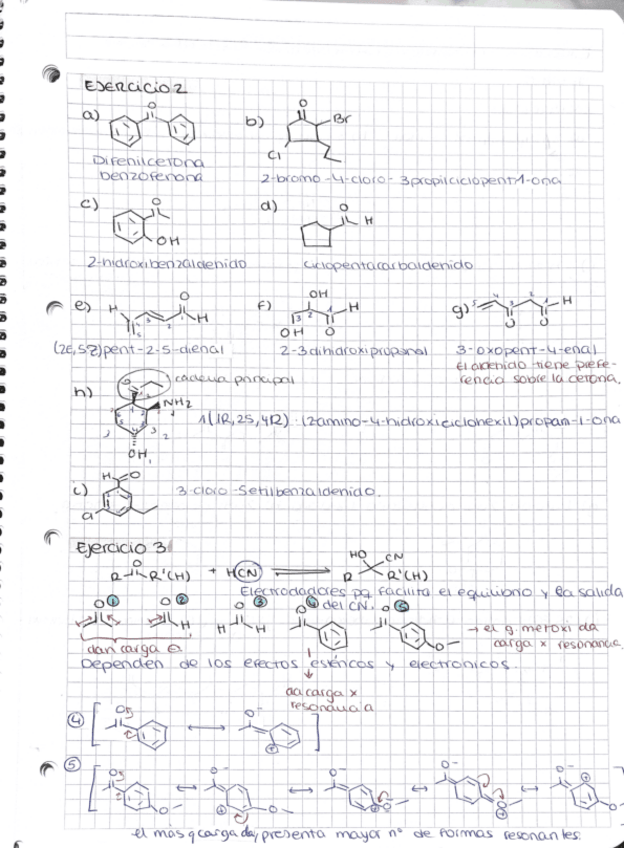 Ejercicio 2
a)
O
b)
O
Br
Cl
Difenilcetona
benzofenona
2-bromo-4-cloro-3propilciclopent-1-ona
c)
O
OH
d)
O
H
2-hidroxibenzaldehido
ciclopentacarbaldehido
e)
H
O
H
f)
OH
3
2
1
H
OH
O
g)
5
4
3
2
1
H
O
O
(2E,5Z)pent-2-5-dienal
2-3dihidroxipropanal
3-oxopent-4-enal
El aldehido tiene prefe-
rencia sobre la cetona.
h)
cadena principal
NH2
1(1R,2S,4R)-(2amino-4-hidroxiciclohexil)propan-1-ona
OH
i)
H
O
Cl
3-cloro-5etilbenzaldehido.
Ejercicio 3
O
R
R'(H)
+ HCN
HO
CN
R
R'(H)
Electrodadores pq facilita el equilibrio y la salida
del CN.
O
1
O
2
H
O
3
H
H
O
4
O
5
O
→ el g. metoxi da
carga x resonancia.
dan carga ⊖
Dependen de los efectos estéricos y electronicos.
da carga x
resonancia
4
O
O-
+
5
O
O
O-
+
O
O-
O
O-
O
O-
+
O
el más q carga da, presenta mayor nº de formas resonantes.